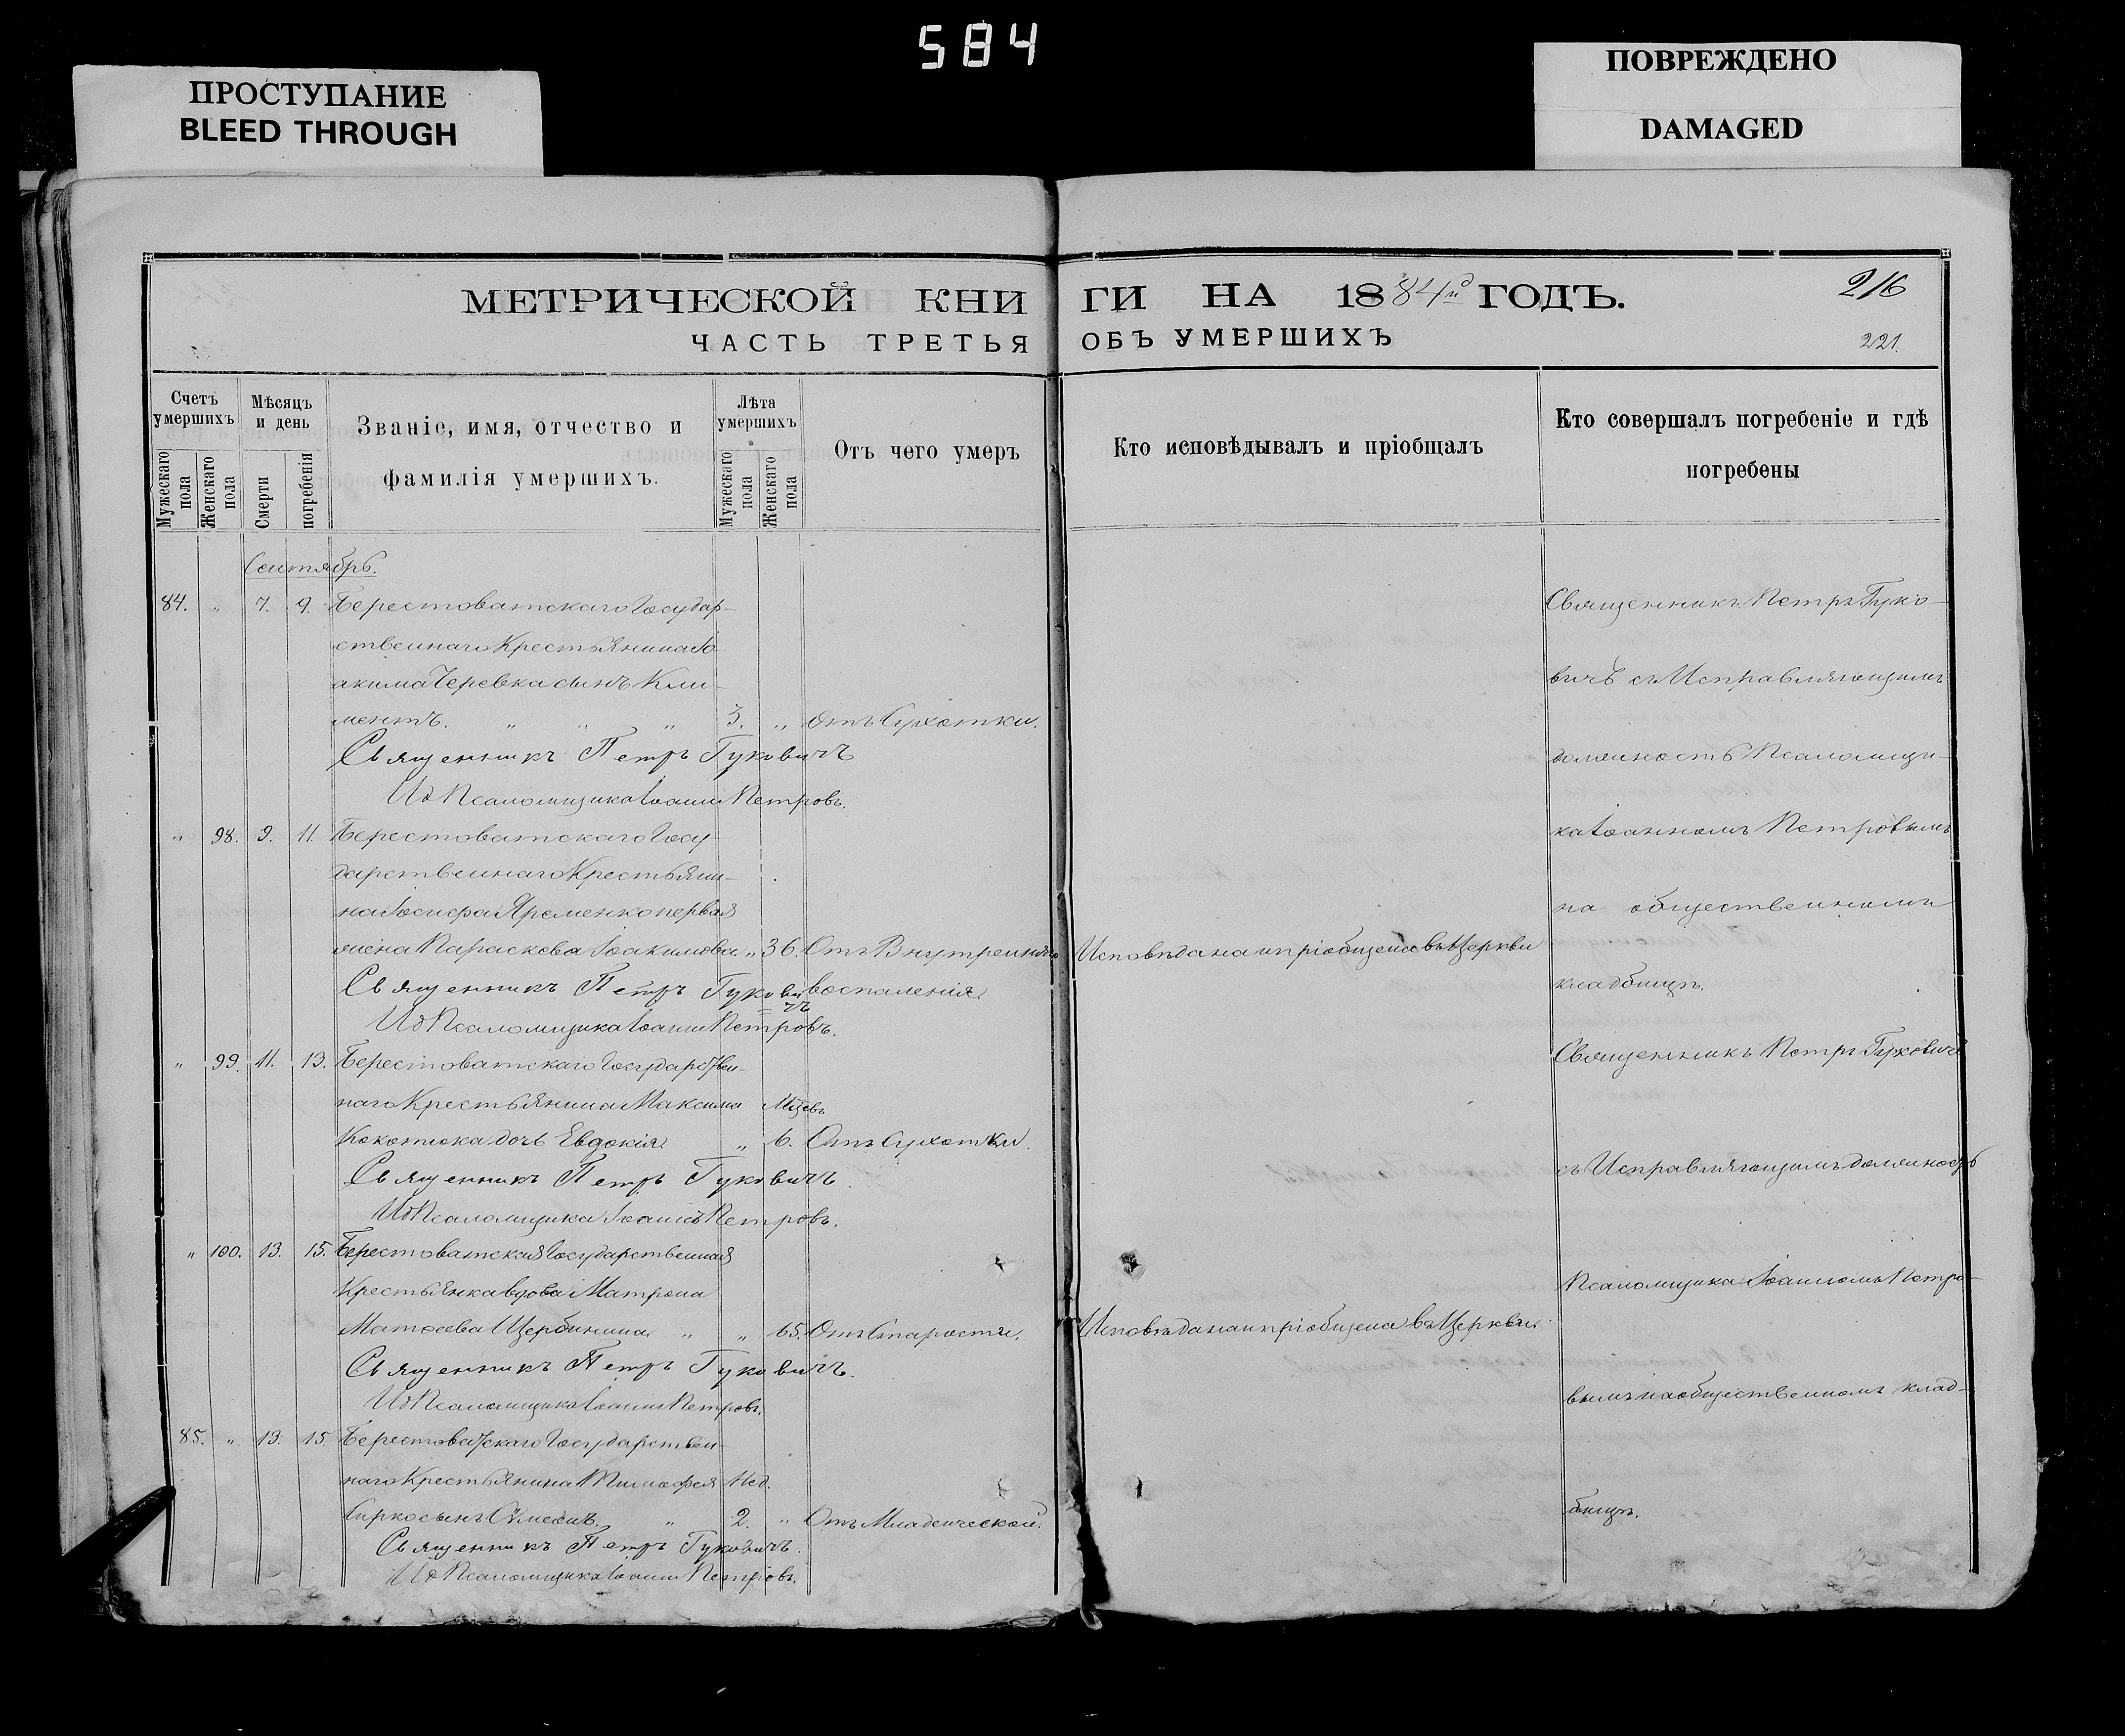 584
ПРОСТУПАНИЕ
BLEED THROUGH
ПОВРЕЖДЕНО
DAMAGED
МЕТРИЧЕСКОЙ КНИ
ГИ НА 1884й ГОДЪ.
216
ЧАСТЬ ТРЕТЬЯ
ОБЪ УМЕРШИХЪ
221.
Счетъ умершихъ
Мужескаго пола
Женскаго пола
Мѣсяцъ и день
Смерти
погребенія
Званіе, имя, отчество и
фамилія умершихъ.
Лѣта умершихъ
Мужескаго пола
Женскаго пола
Отъ чего умеръ
Кто исповѣдывалъ и пріобщалъ
Кто совершалъ погребеніе и гдѣ
погребены
Сентябрь.
84. „ 7. 9. Берестоватскаго Государ-
ственнаго Крестьянина Іо
акима Черевка сынъ Кли-
ментъ. „ „ „ 3. „ Отъ Сухотки.
Священникъ Петръ Гуковичъ
ИдПсаломщика Іоаннъ Петровъ.
„ 98. 9. 11. Берестоватскаго Госу-
дарственнаго Крестьяни-
на Іосифа Яременко первая
жена Параскева Іоакимова. „ 36. Отъ Внутренняго
воспаленія.
Исповѣдана и пріобщена въ Церкви
Священникъ Петръ Гуковичъ
ИдПсаломщика Іоаннъ Петровъ.
„ 99. 11. 13. Берестоватскаго Государствен-
наго Крестьянина Максима Мцевъ
Кокотюка дочь Евдокія. „ 6. Отъ Сухотки.
Священникъ Петръ Гуковичъ.
ИдПсаломщика Іоаннъ Петровъ.
„ 100. 13. 15. Берестоватская Государственная
Крестьянка вдова Матрона
Матѳеева Щербинина „ „ 65. Отъ Старости.
Исповѣдана и пріобщена въ Церкви.
Священникъ Петръ Гуковичъ.
ИдПсаломщика Іоаннъ Петровъ.
85. „ 13. 15. Берестоватскаго Государствен-
наго Крестьянина Тимофея Нед.
сынъ „ 2. „ Отъ Младенческой.
Священникъ Петръ Гуковичъ.
ИдПсаломщика Іоаннъ Петровъ.
Священникъ Петръ Гуко-
вичъ съ Исправляющимъ
должность Псаломщи-
ка Іоанномъ Петровымъ
на общественномъ
кладбищѣ.
Священникъ Петръ Гуковичъ
съ Исправляющимъ должность
Псаломщика Іоанномъ Петро-
вымъ на общественномъ клад-
бищѣ.